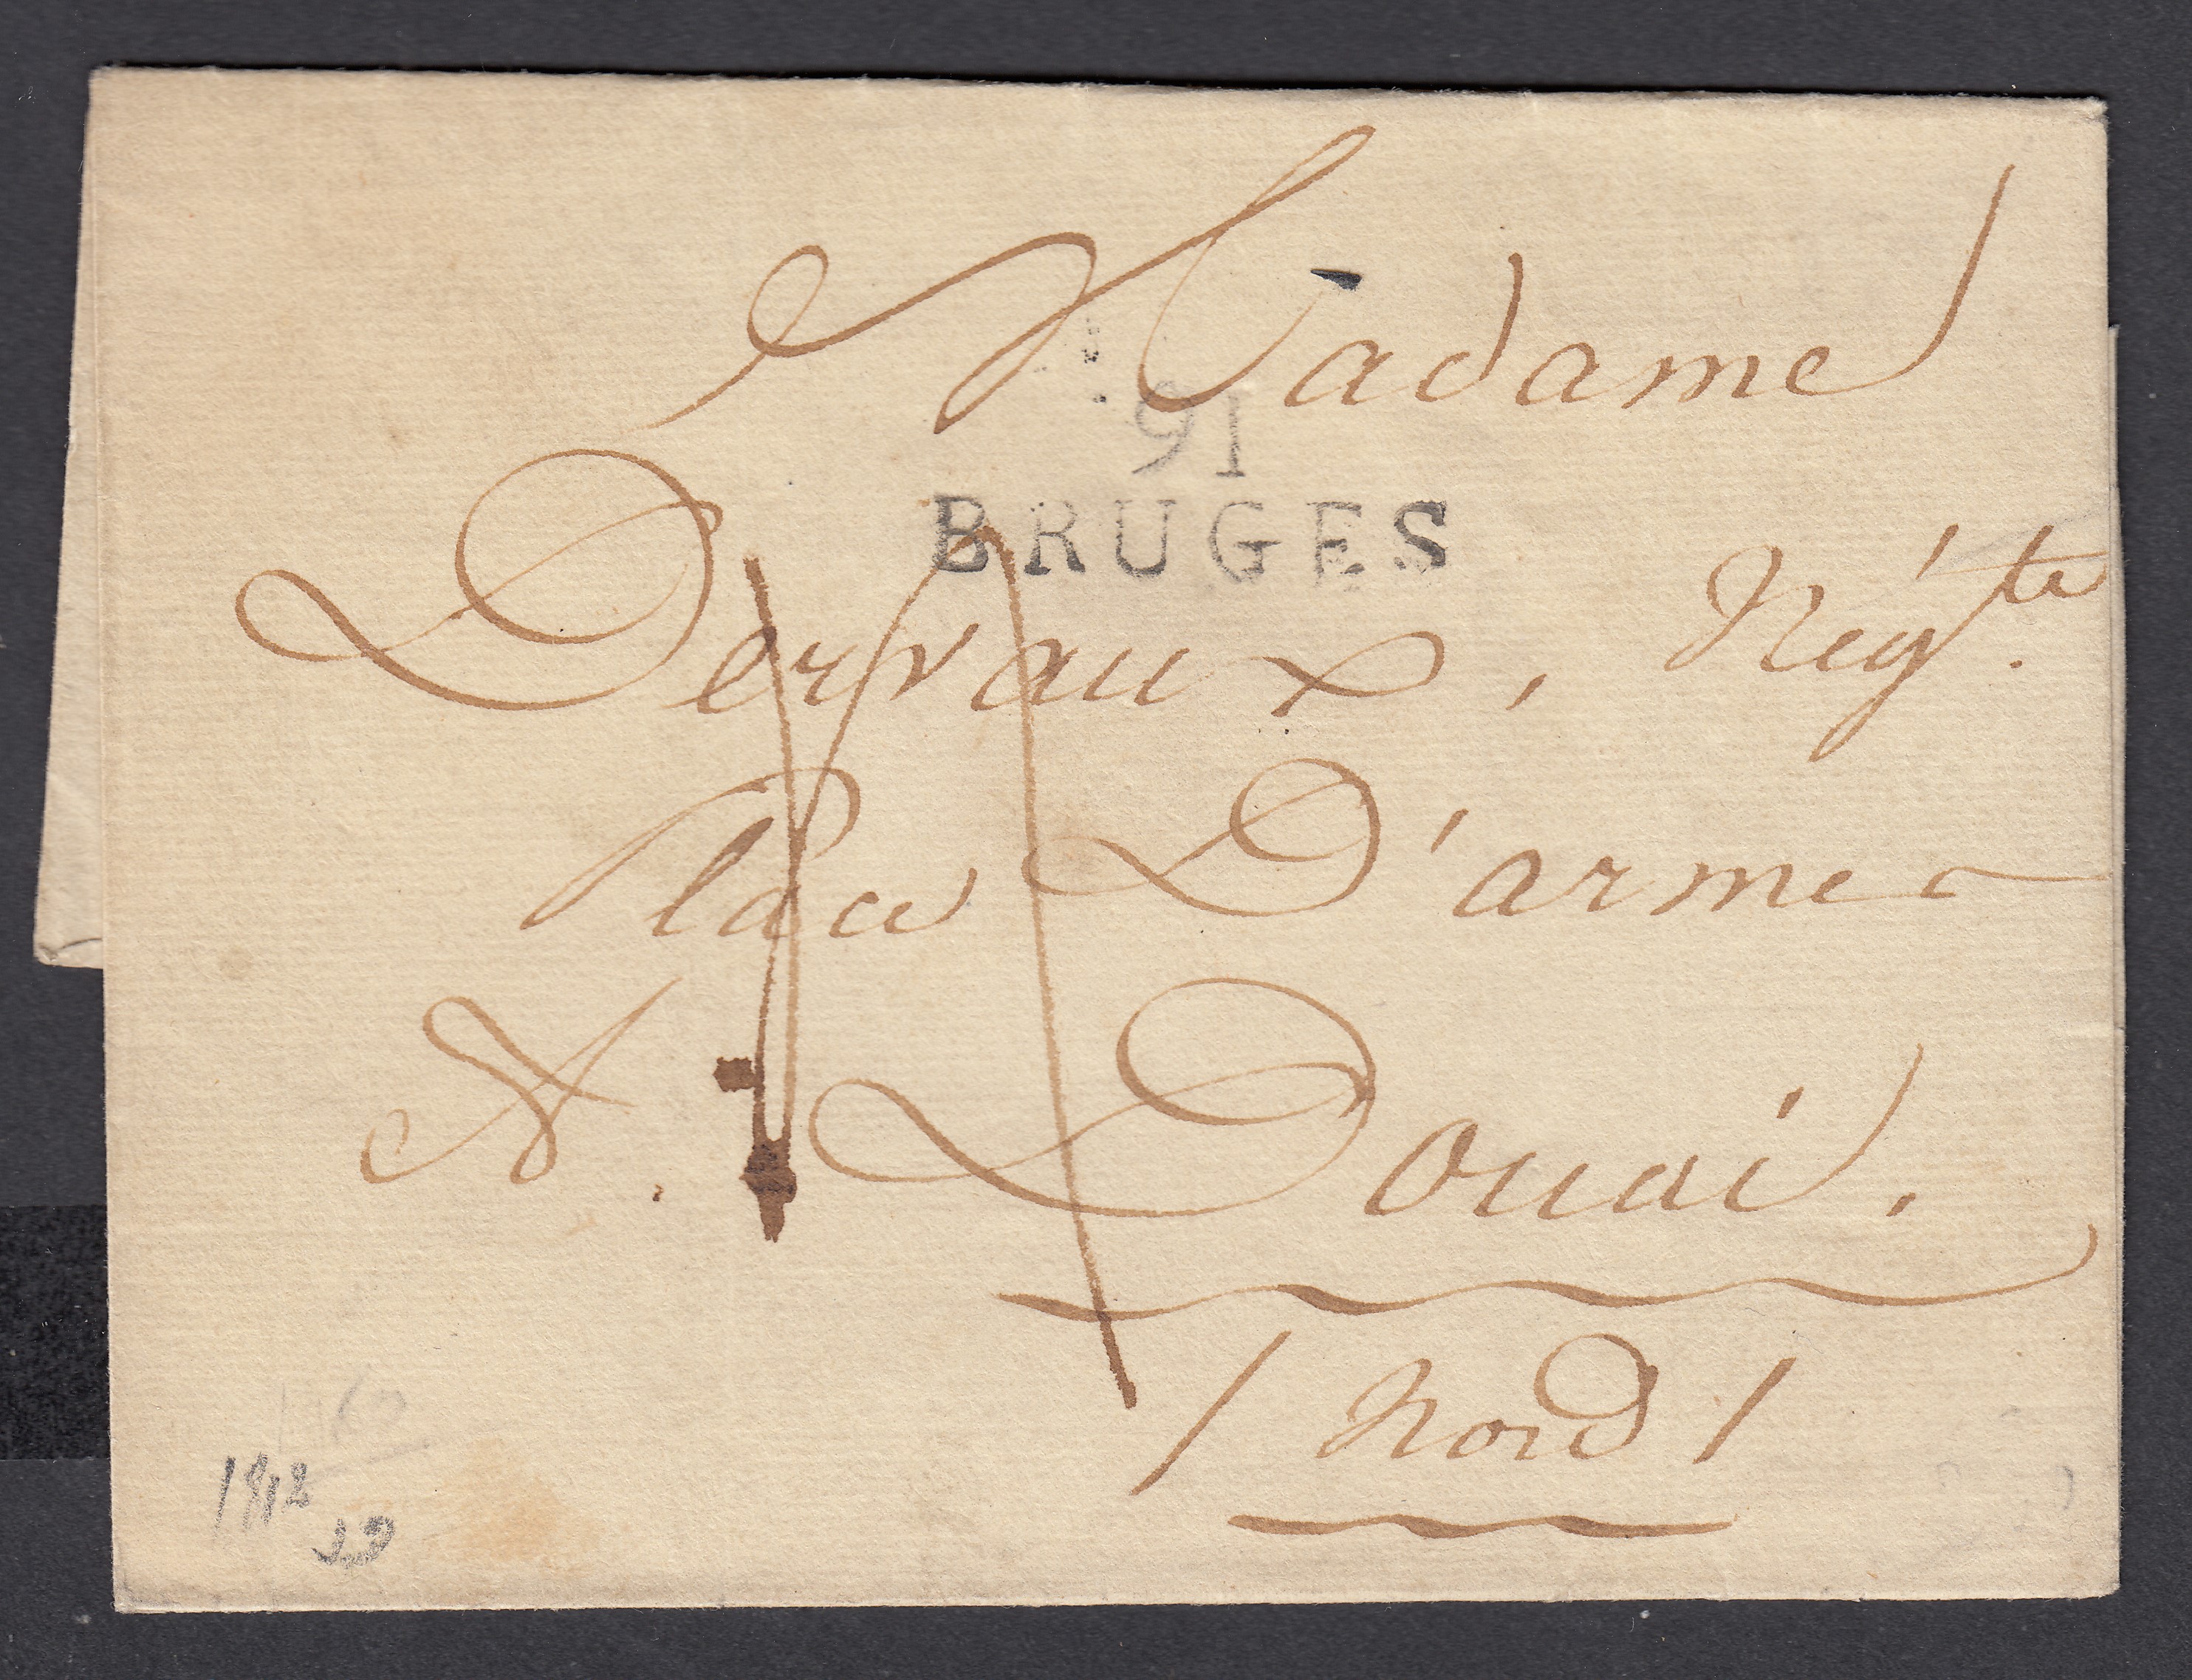 Madame
91
BRUGES
Dervaux, Nég.te
Place D'armes
A Douai.
/ Nord /
1812